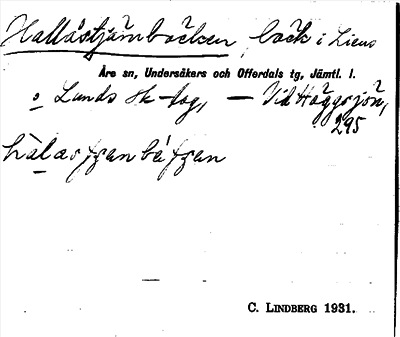 Hallåstjärnbäcken, bäck i Liens
Åre sn, Undersåkers och Offerdals tg, Jämtl. l.
o Lunds sk-lag, — Vid Häggsjön,
295
C. LINDBERG 1931.